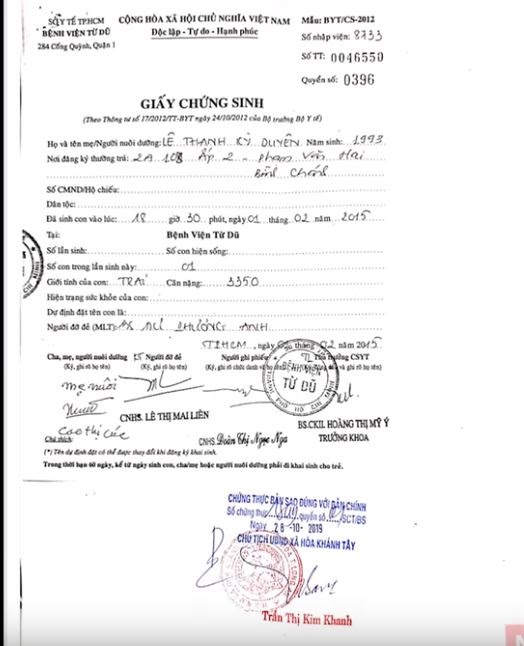 SỞ Y TẾ TPHCM
BỆNH VIỆN TỪ DŨ
284 Cống Quỳnh, Quận 1
CỘNG HÒA XÃ HỘI CHỦ NGHĨA VIỆT NAM
Độc lập - Tự do - Hạnh phúc
Mẫu: BYT/CS-2012
Số nhập viện: 8733
Số TT: 0046550
Quyển số: 0396
GIẤY CHỨNG SINH
(Theo Thông tư số 17/2012/TT-BYT ngày 24/10/2012 của Bộ trưởng Bộ Y tế)
Họ và tên mẹ/Người nuôi dưỡng: LÊ THANH KỲ DUYÊN Năm sinh: 1993
Nơi đăng ký thường trú: 2A 108 Ấp 2 - Phạm Văn Hai
Bình Chánh
Số CMND/Hộ chiếu:
Dân tộc:
Đã sinh con vào lúc: 18 giờ 30 phút, ngày 01 tháng 02 năm 2015
Tại: Bệnh Viện Từ Dũ
Số lần sinh: Số con hiện sống:
Số con trong lần sinh này: 01
Giới tính của con: TRAI Cân nặng: 3350
Hiện trạng sức khỏe của con:
Dự định đặt tên con là:
Người đỡ đẻ (MLT): PHƯƠNG ANH
TPHCM, ngày tháng 02 năm 2015
Cha, mẹ, người nuôi dưỡng Người đỡ đẻ Người ghi phiếu Thủ trưởng CSYT
(Ký, ghi rõ họ tên) (Ký, ghi rõ họ tên) (Ký, ghi rõ chức danh và họ tên)
BỆNH VIỆN
TỪ DŨ
mẹ nuôi
CNHS. LÊ THỊ MAI LIÊN
BS.CKII. HOÀNG THỊ MỸ Ý
Cao Thị Cúc
CNHS. Đoàn Thị Ngọc Nga
TRƯỞNG KHOA
Ghi chú:
(*) Tên dự định đặt có thể được thay đổi khi đăng ký khai sinh.
Trong thời hạn 60 ngày, kể từ ngày sinh con, cha/mẹ hoặc người nuôi dưỡng phải đi khai sinh cho trẻ.
CHỨNG THỰC BẢN SAO ĐÚNG VỚI BẢN CHÍNH
Số chứng thực quyển số SCT/BS
Ngày 28-10-2019
CHỦ TỊCH UBND XÃ HÒA KHÁNH TÂY
Trần Thị Kim Khanh